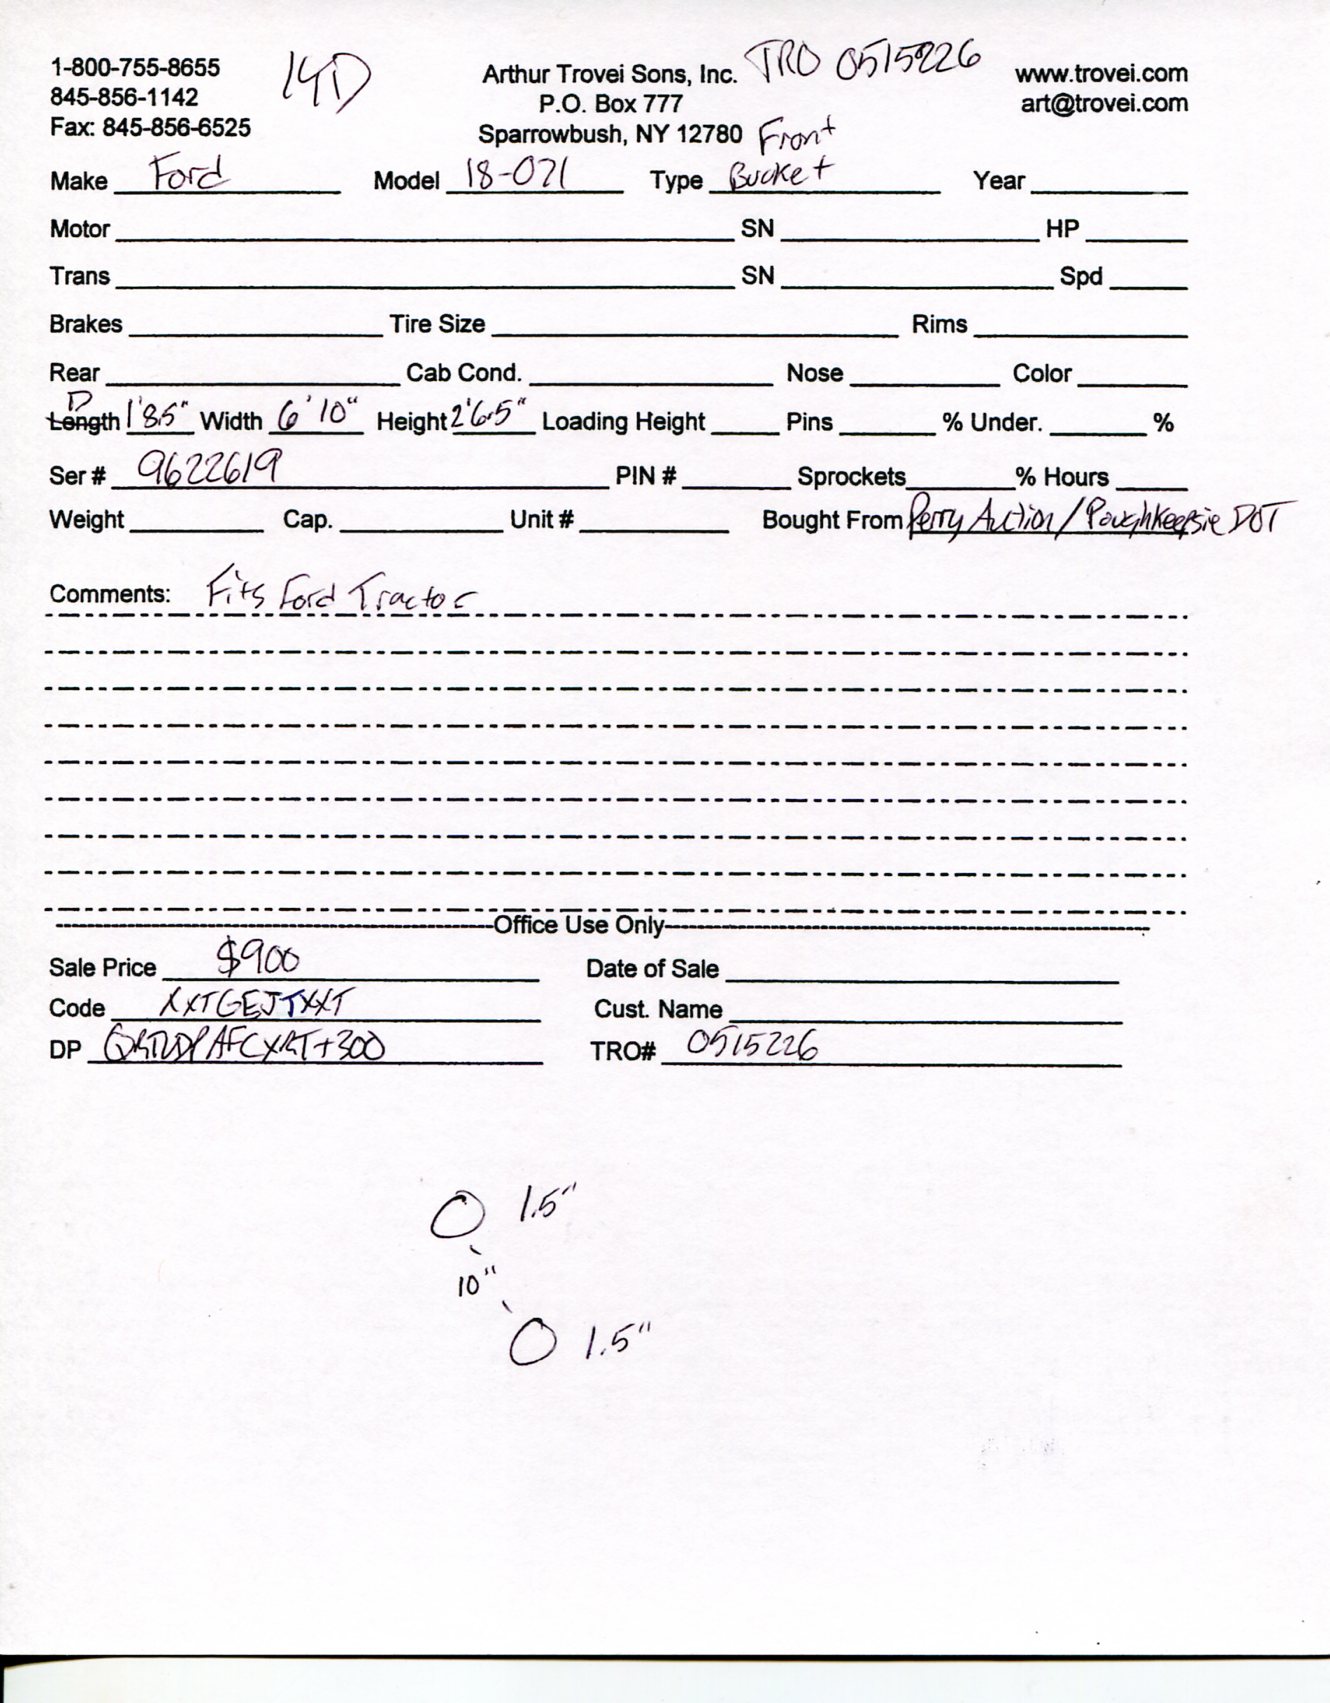 1-800-755-8655 14D Arthur Trovei Sons, Inc. TRO 0515226 www.trovei.com
845-856-1142 P.O. Box 777 art@trovei.com
Fax: 845-856-6525 Sparrowbush, NY 12780 Front
Make Ford Model 18-021 Type Bucket Year
Motor SN HP
Trans SN Spd
Brakes Tire Size Rims
Rear Cab Cond. Nose Color
D
Length 1'8.5" Width 6'10" Height 2'6.5" Loading Height Pins % Under. %
Ser # 9622619 PIN # Sprockets % Hours
Weight Cap. Unit # Bought From Perry Auction/Poughkeepsie DOT
Comments: Fits Ford Tractor
Office Use Only
Sale Price $900 Date of Sale
Code XXTGEJTXXT Cust. Name
DP +300 TRO# 0515226
1.5"
10"
1.5"